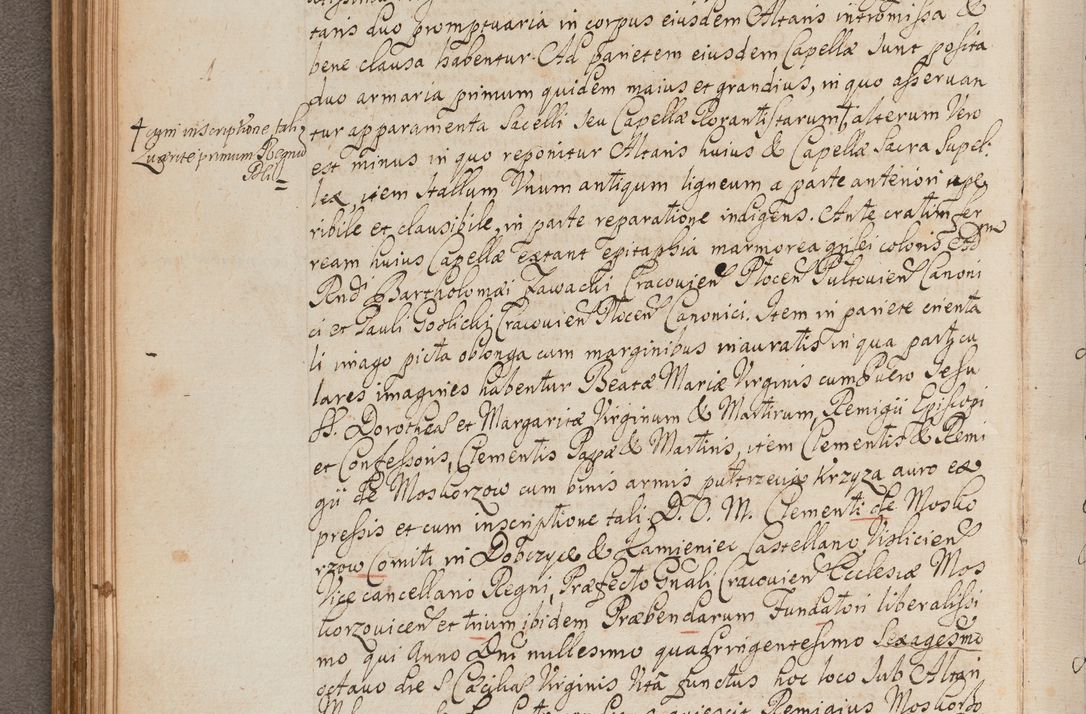 taris duo promptuaria in corpus eiusdem Altaris intromissa &
bene clausa habentur. Ad parietem eiusdem Capellæ sunt posita
duo armaria primum quidem maius et grandius, in quo asservan
tur apparamenta Sacelli seu Capellæ Rorantistarum † alterum vero
† cum inscriptione tali
Lugete primum Regnu
Poli
est minus in quo reponitur Altaris huius & Capellæ Sacra Supel:
lex, item stallum Unum antiqum ligneum a parte anteriori ape
ribile et clausibile, in parte reparatione indigens. Ante cratim fer
ream huius Capellæ extant epitaphia marmorea grisei coloris
Rndi Bartholomæi Zawacki Cracovien Plocen Pultovien Canoni
ci et Pauli Goslicki Cracovien Plocen Canonici. Item in pariete orienta
li imago picta oblonga cum marginibus inauratis in qua particu
lares imagines habentur Beatæ Mariæ Virginis cum Puero Jesu
SS. Dorotheæ et Margaritæ Virginum & Martirum, Remigii Episcopi
et Confessoris, Clementis Papæ & Martiris, item Clementis & Remi
gii de Moskorzow cum binis armis pułtrzecia Krzyza auro ex
pressis et cum inscriptione tali D. O. M. Clementi de Mosko
rzow Comiti in Dobczyce & Kamieniec Castellano Vislicien
Vice cancellario Regni, Præfecto Gnali Cracovien Ecclesiæ Mos
korzovicen et trium ibidem Præbendarum Fundatori liberalissi
mo qui Anno Dni millesimo quadringentesimo Sexagesimo
octavo die S. Cæciliæ Virginis vita functus hoc loco sub Altari
quiescit Remigius Moskorzo